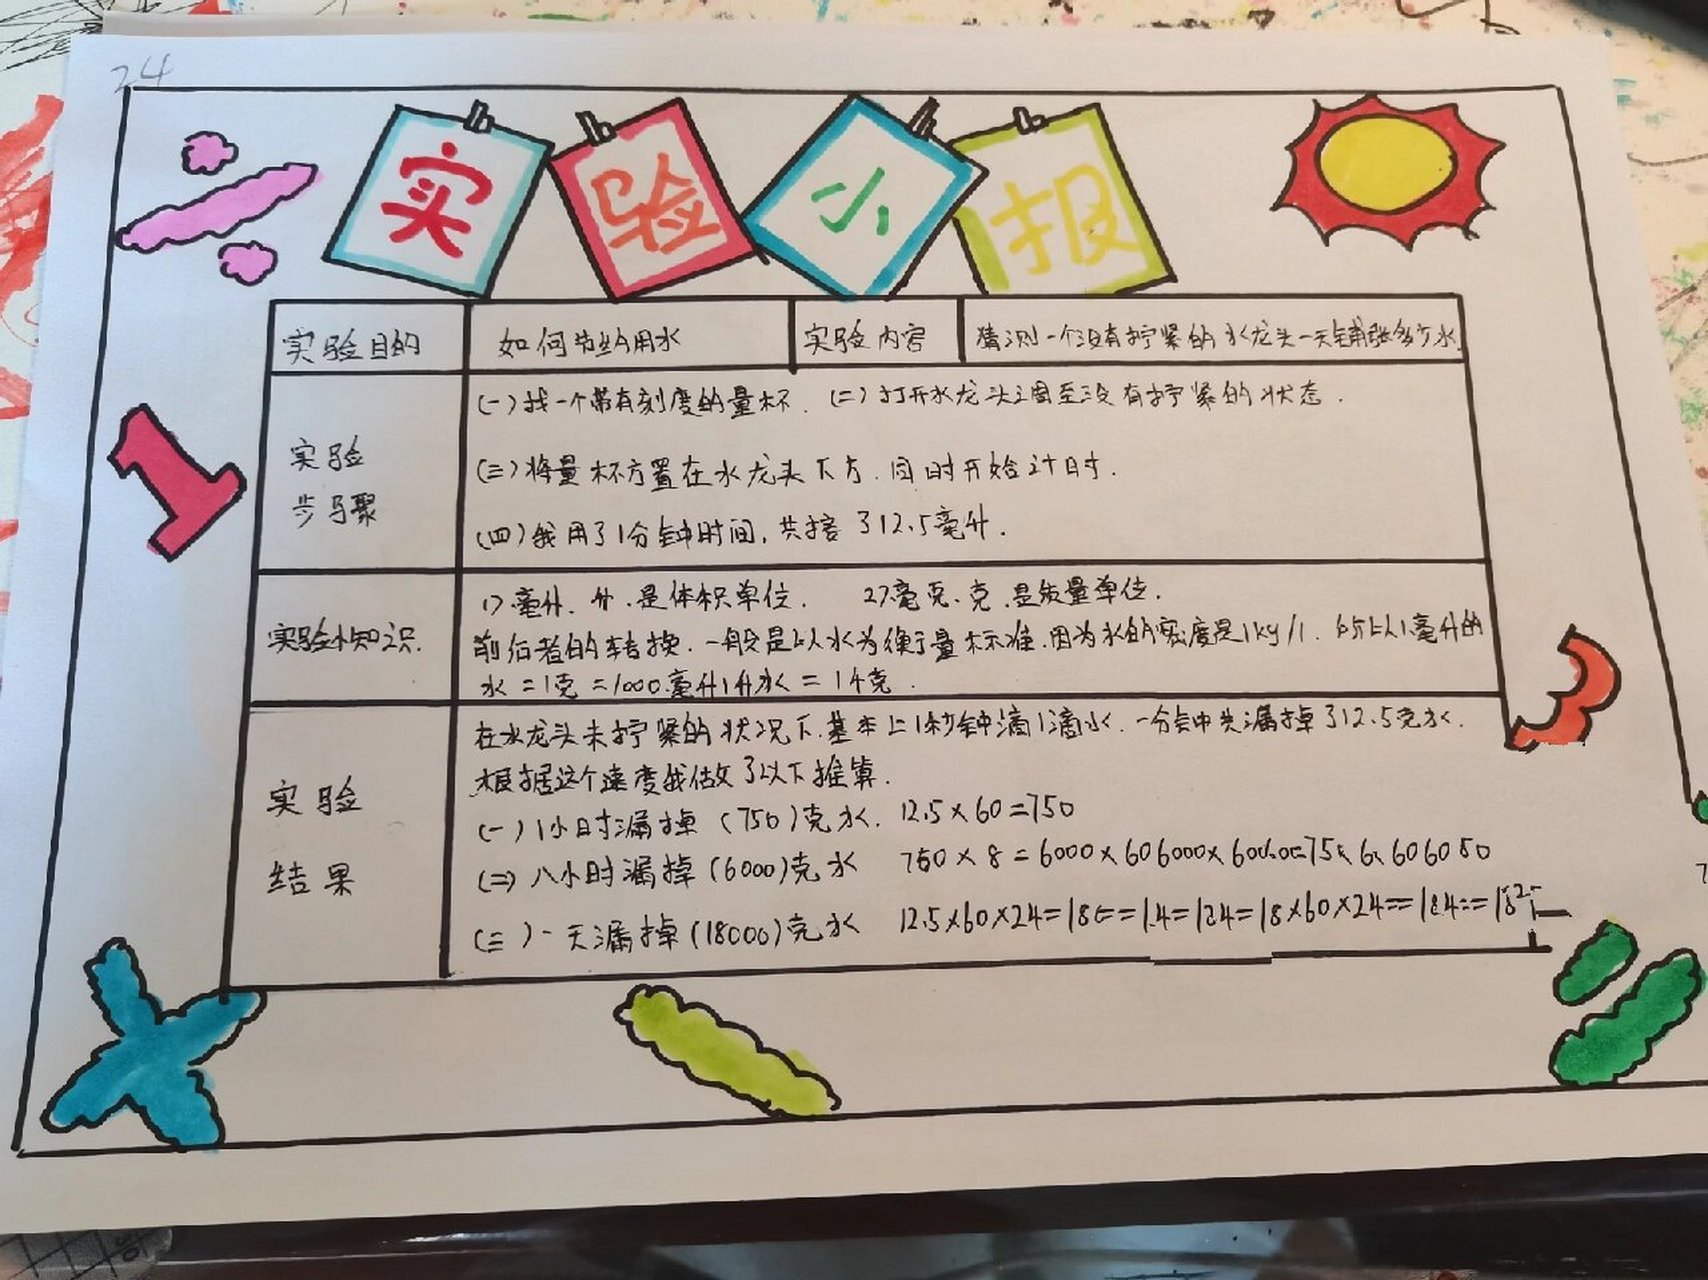 24
实验小报
实验目的 如何节约用水 实验内容 猜测一个没有拧紧的水龙头一天铺张多少水
(一)找一个带有刻度的量杯. (二)打开水龙头调至没有拧紧的状态.
实验
步骤
(三)将量杯方置在水龙头下方.同时开始计时.
(四)我用了1分钟时间,共接了12.5毫升.
实验小知识.
1)毫升、升.是体积单位. 2)毫克、克.是质量单位.
前后者的转换.一般是以水为衡量标准.因为水的密度是1kg/1.所以1毫升的
水=1克=1000毫升1升水=1千克.
实验
结果
在水龙头未拧紧的状况下.基本上1秒钟滴1滴水.一分钟共漏掉了12.5克水.
根据这个速度我做了以下推算.
(一)1小时漏掉(750)克水. 12.5×60=750
(二)八小时漏掉(6000)克水 760×8=6000×606000×
(三)一天漏掉(18000)克水 12.5×60×24=
1
3